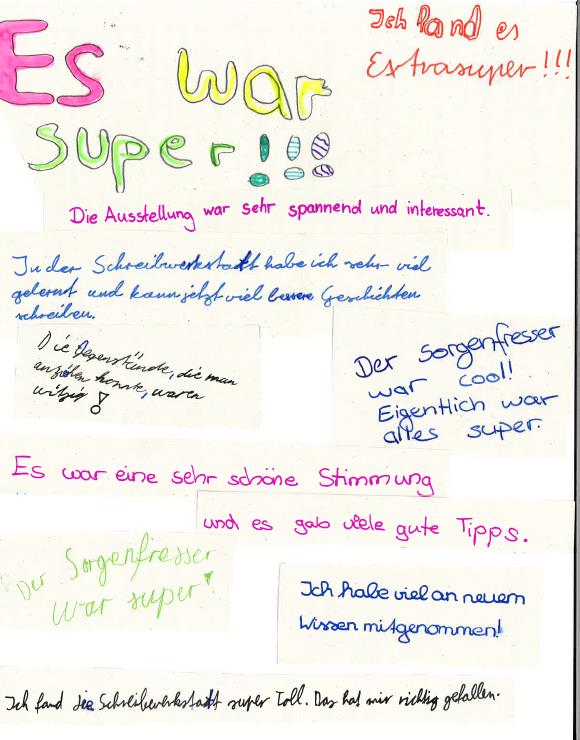 Es war
super!!!
Ich fand es
Extrasuper!!!
Die Ausstellung war sehr spannend und interessant.
In der Schreibwerkstatt habe ich sehr viel
gelernt und kann jetzt viel bessere Geschichten
schreiben.
Die Gegenstände, die man
anziehen konnte, waren
witzig!
Der Sorgenfresser
war cool!
Eigentlich war
alles super.
Es war eine sehr schöne Stimmung
und es gab viele gute Tipps.
Der Sorgenfresser
war super!
Ich habe viel an neuem
Wissen mitgenommen!
Ich fand die Schreibwerkstatt super toll. Das hat mir richtig gefallen.